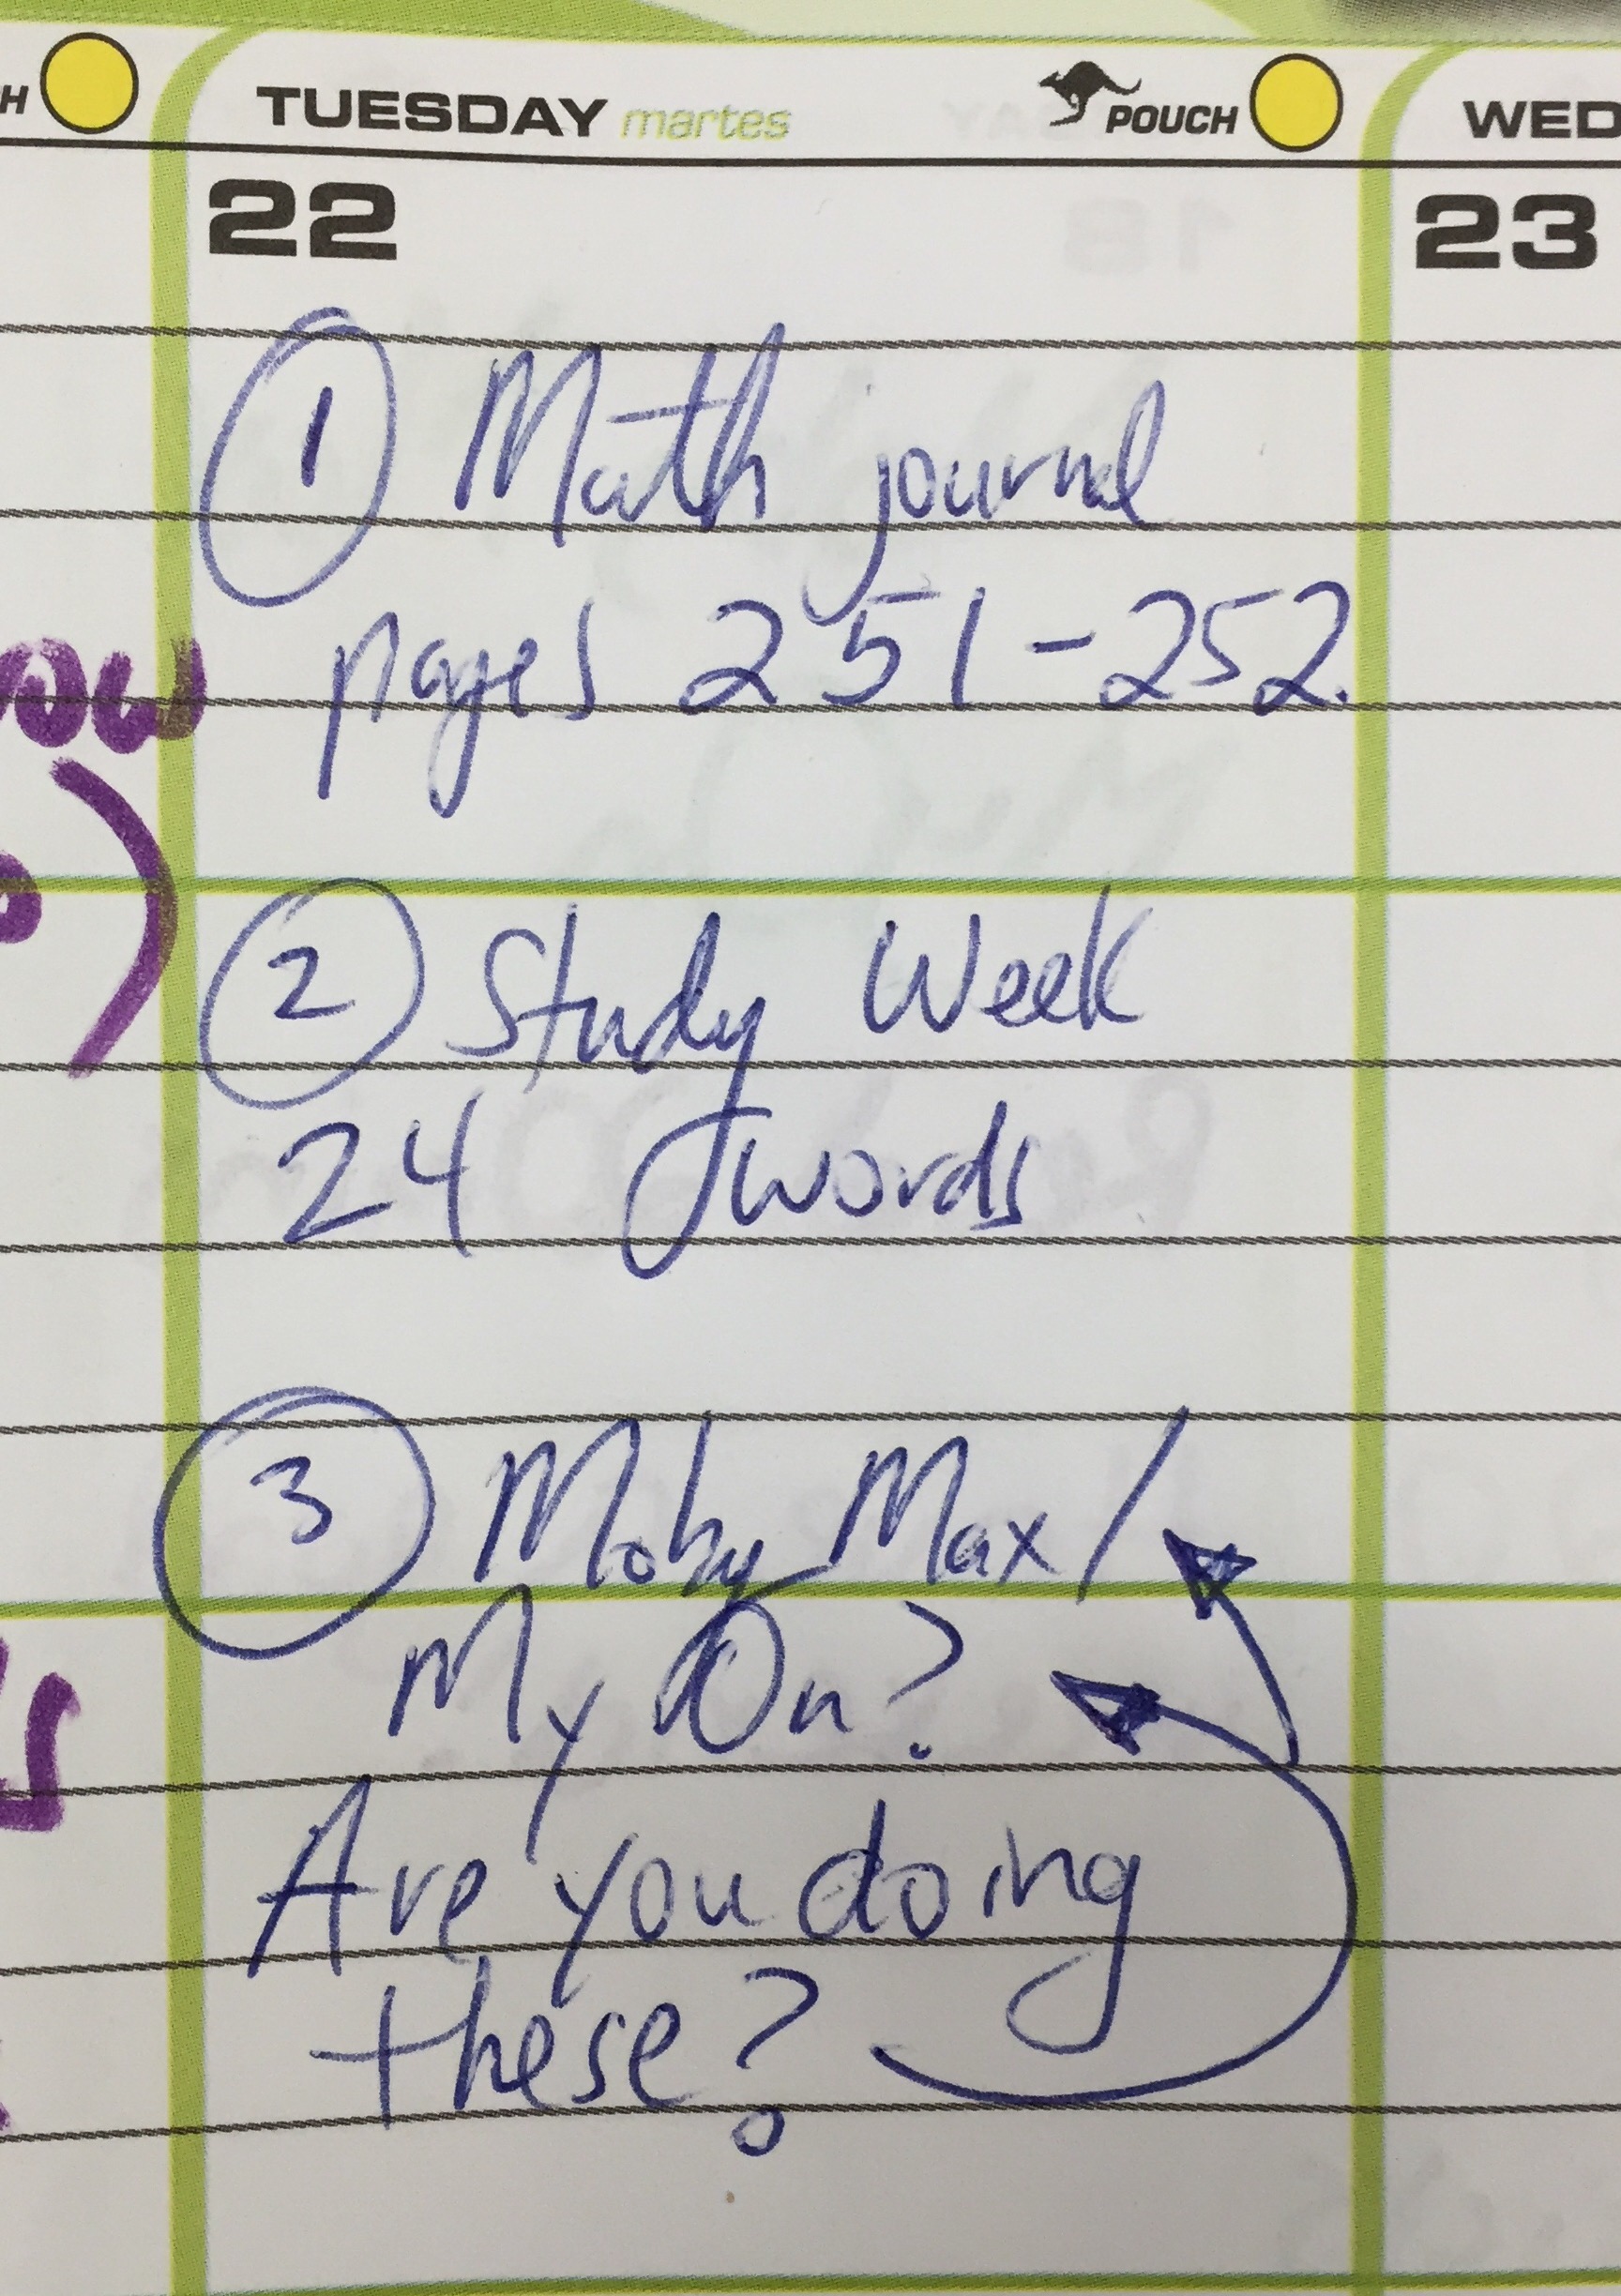 H
TUESDAY martes POUCH
WED
22
23
① Math journal
pages 251-252.
ou
② Study Week
24 words
③ Moby Max/
My On?
Are you doing
these?